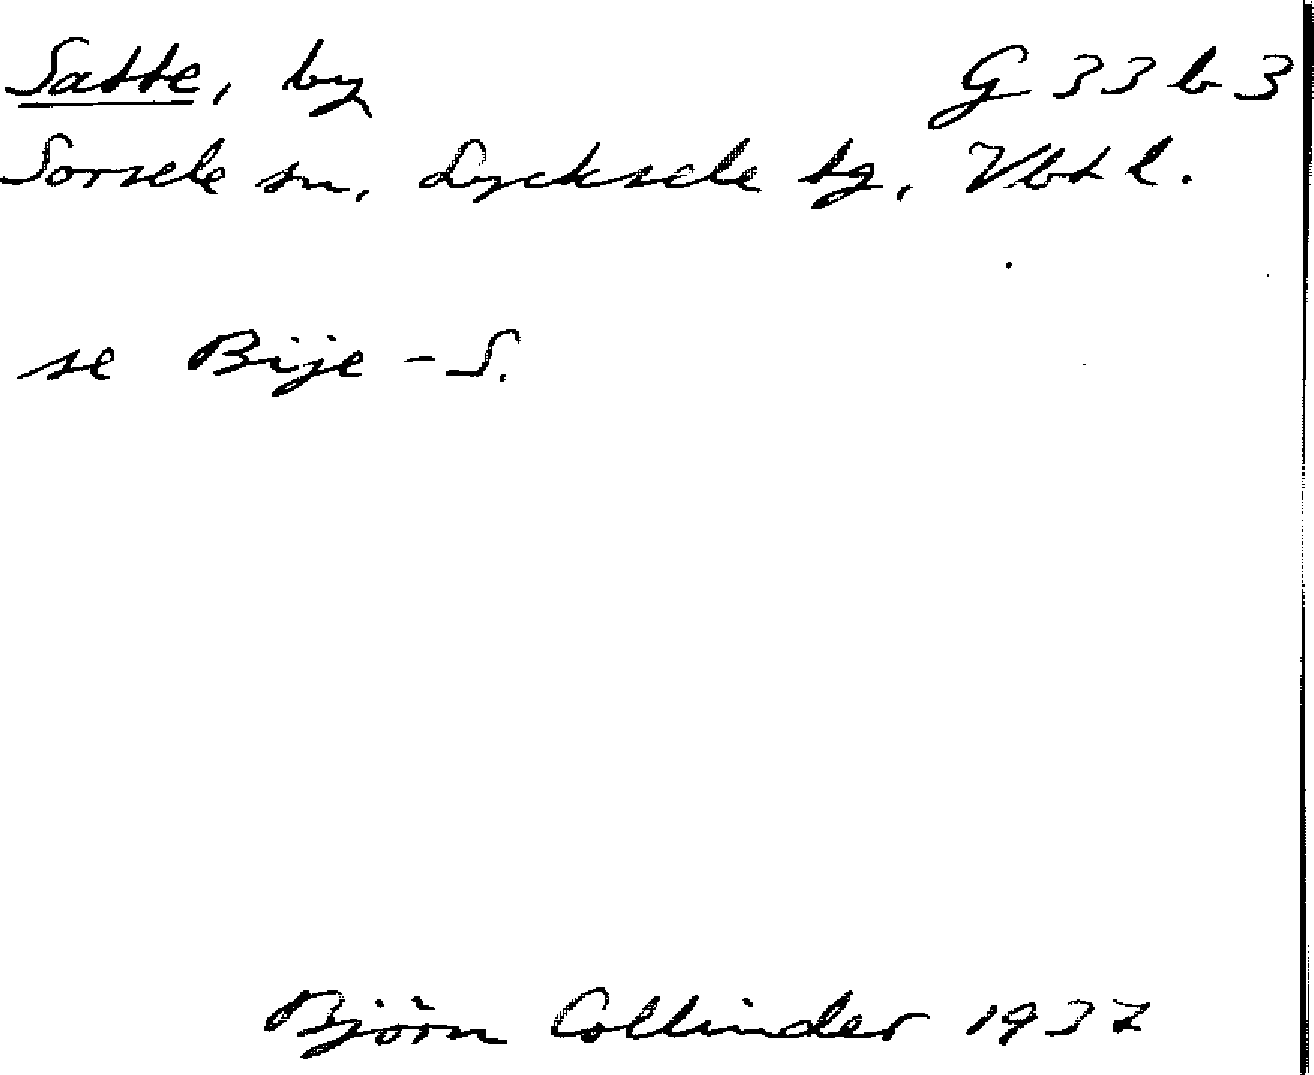 Satte, by G 33 b 3
Sorsele sn, Lycksele tg, Vbtl.
se Bije-S.
Björn Collinder 1937